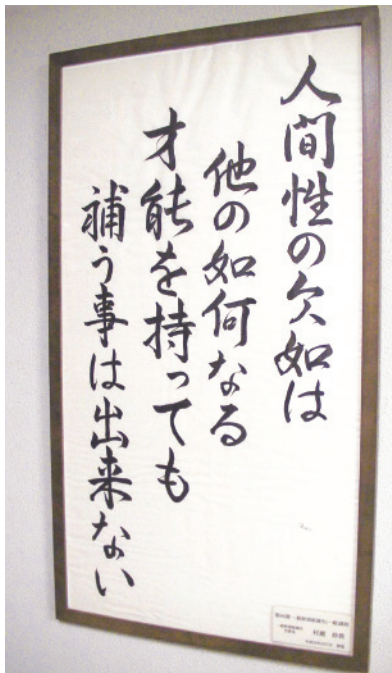 人間性の欠如は
他の如何なる
才能を持っても
補う事は出来ない